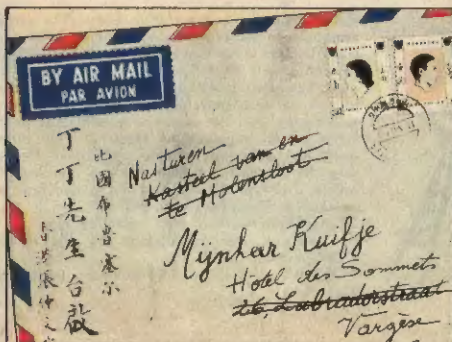 BY AIR MAIL
PAR AVION
比國布魯塞尔
丁丁先生台啟
香港張仲文
Nasturen
Kasteel van en
te Molensloot
Mijnheer Kuifje
Hôtel des Sommets
26, Labradorstraat
Vargèse